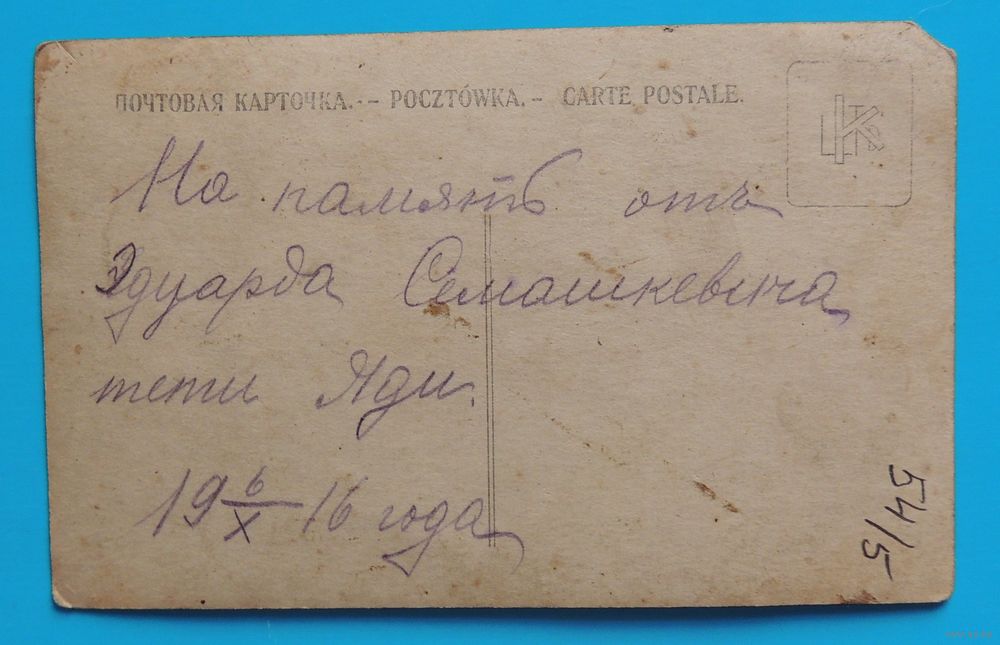 ПОЧТОВАЯ КАРТОЧКА. -- POCZTÓWKA. - CARTE POSTALE.
На память отъ
Эдуарда Семашкевича
тети Яди.
19 6/X 16 года
54/5